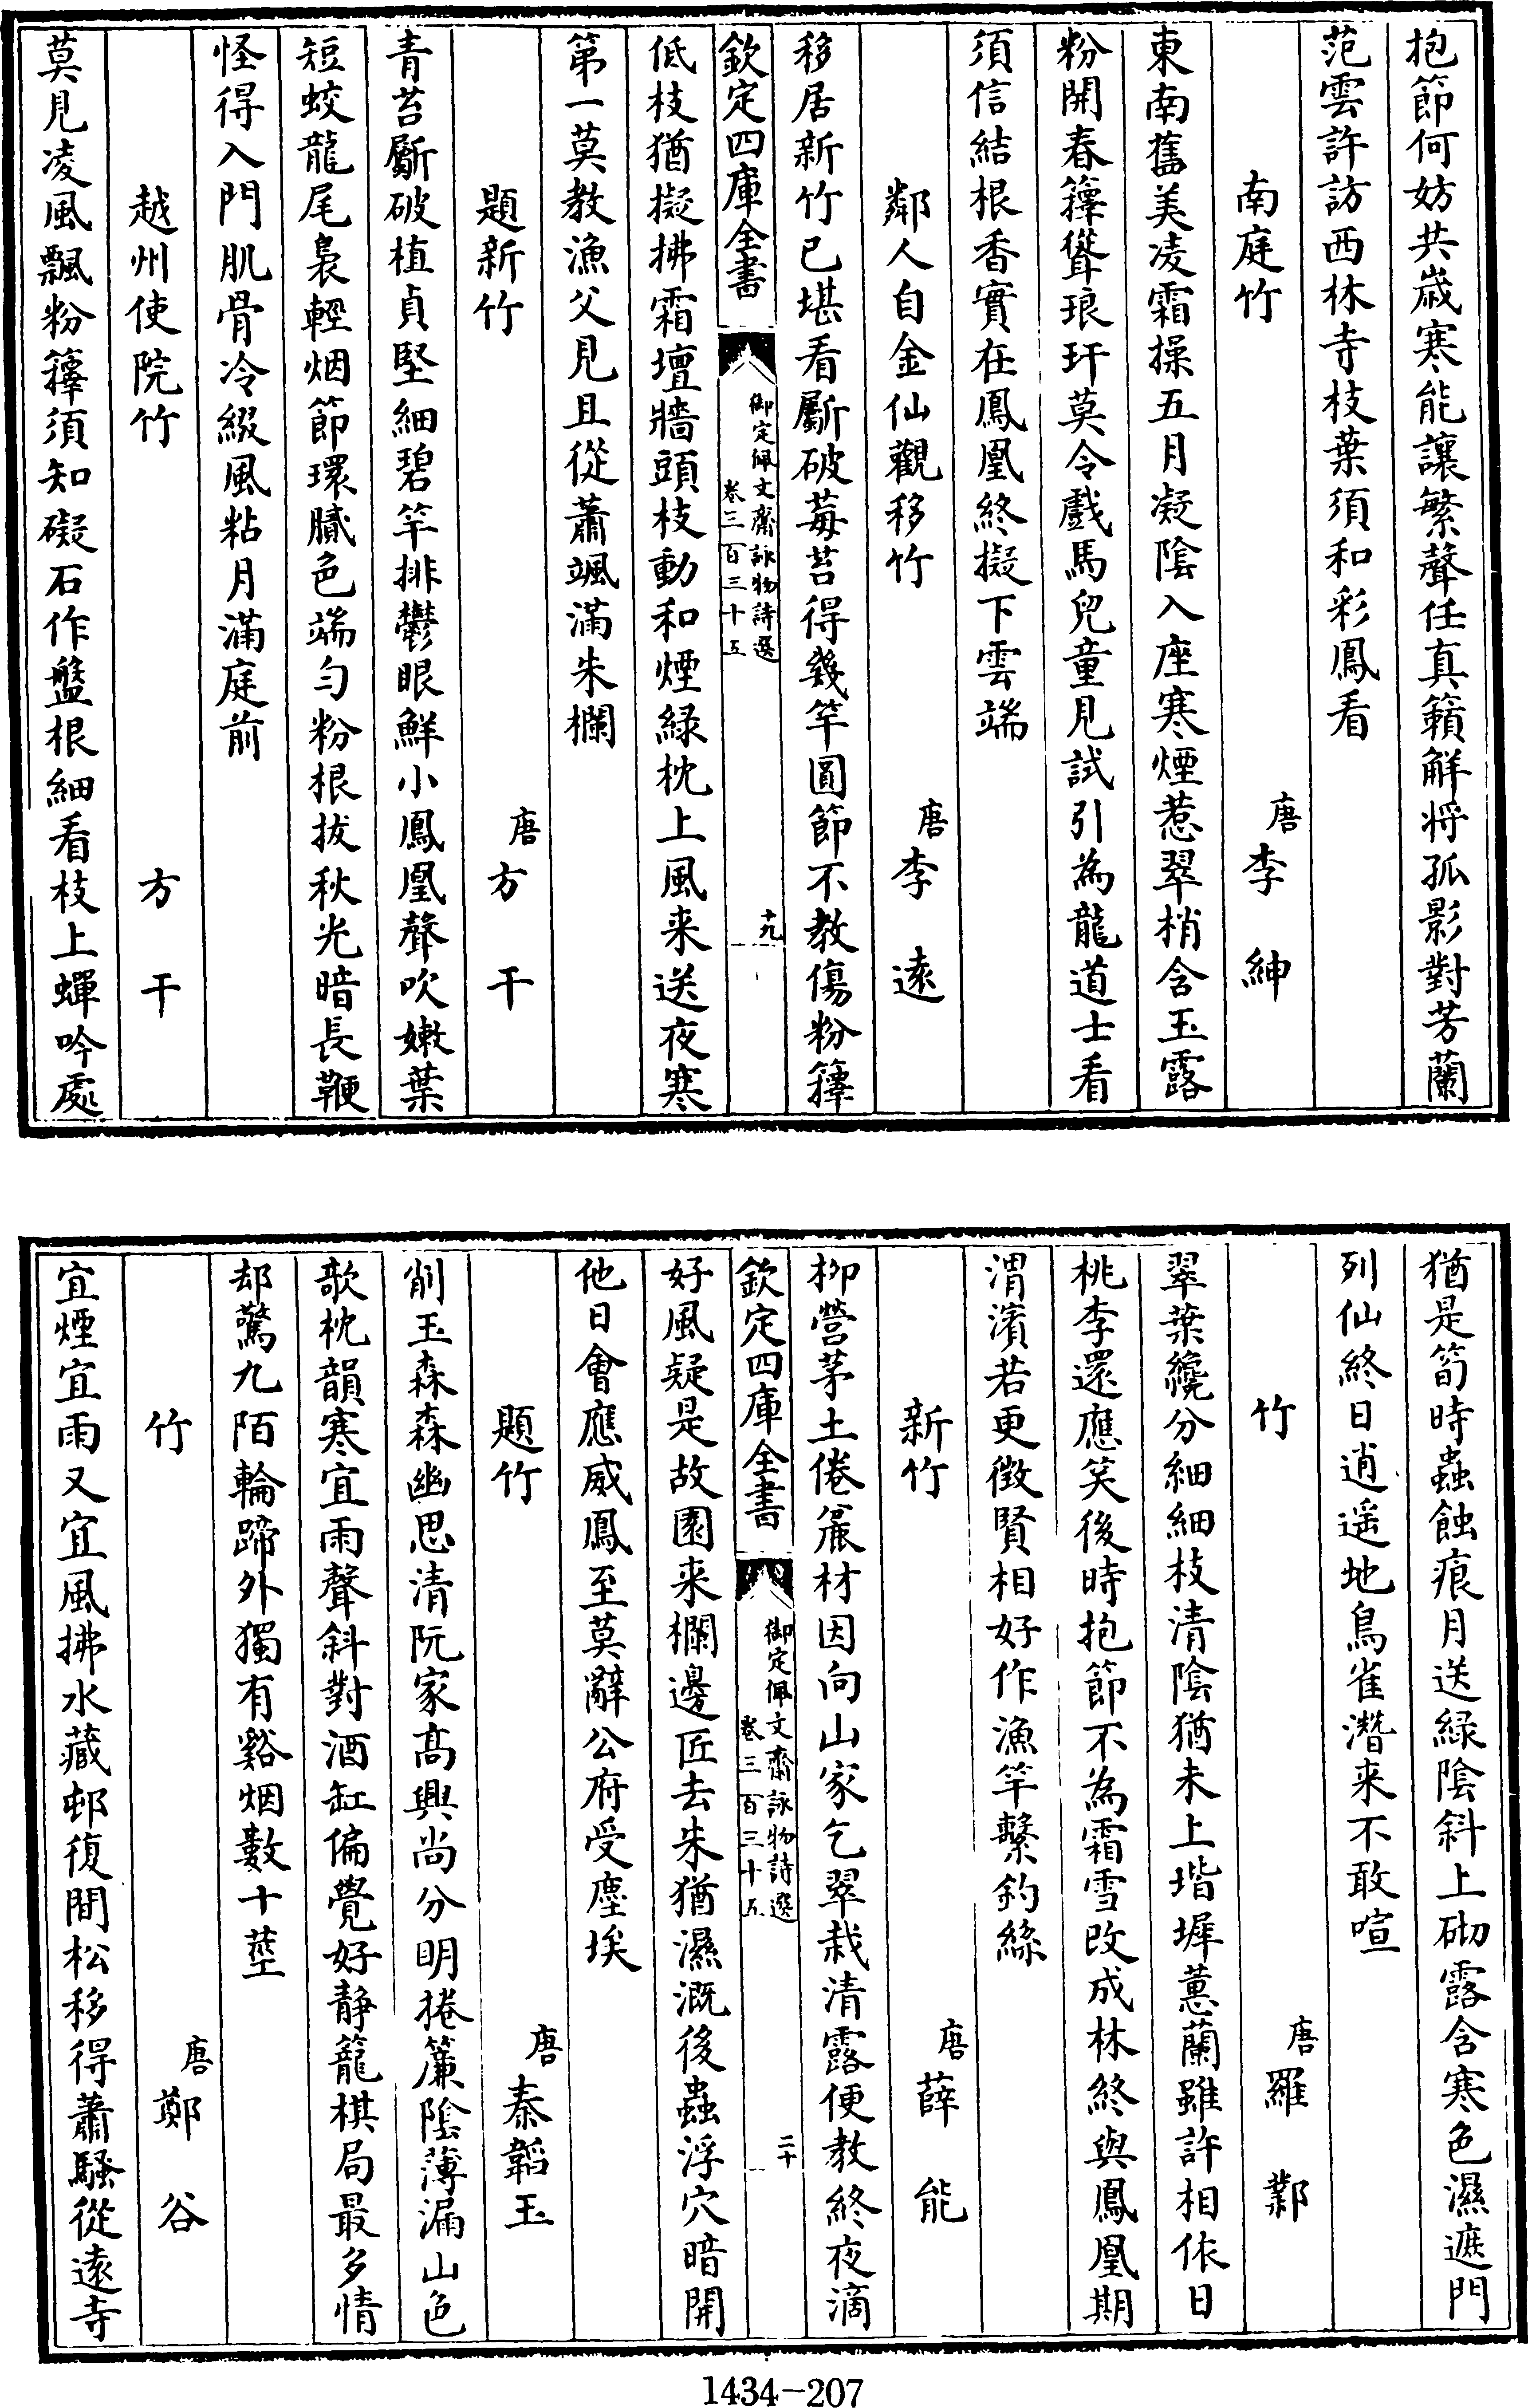 抱節何妨共歳寒能讓繁聲任真籟解將孤影對芳蘭
范雲許訪西林寺枝葉須和彩鳳看
南庭竹
唐李紳
東南舊美凌霜操五月凝陰入座寒煙惹翠梢含玉露
粉開春籜聳琅玕莫令戲馬兒童見試引為龍道士看
須信結根香實在鳳凰終擬下雲端
鄰人自金仙觀移竹
唐李遠
移居新竹已堪看斸破莓苔得幾竿圓節不教傷粉籜
欽定四庫全書
御定佩文齋詠物詩選
卷三百三十五
十九
低枝猶擬拂霜壇牆頭枝動和煙緑枕上風来送夜寒
第一莫教漁父見且從蕭颯滿朱欄
題新竹
唐方干
青苔斸破植貞堅細碧竿排鬱眼鮮小鳳凰聲吹嫩葉
短蛟龍尾裊輕烟節環膩色端勻粉根拔秋光暗長鞭
怪得入門肌骨冷綴風粘月滿庭前
越州使院竹
方干
莫見凌風飄粉籜須知礙石作盤根細看枝上蟬吟處
猶是筍時蟲蝕痕月送緑陰斜上砌露含寒色濕遮門
列仙終日逍遥地鳥雀潛来不敢喧
竹
唐羅鄴
翠葉纔分細細枝清陰猶未上堦墀蕙蘭雖許相依日
桃李還應笑後時抱節不為霜雪改成林終與鳳凰期
渭濱若更徴賢相好作漁竿繫釣絲
新竹
唐薛能
柳營茅土倦麄材因向山家乞翠栽清露便教終夜滴
欽定四庫全書
御定佩文齋詠物詩選
卷三百三十五
二十
好風疑是故園来欄邊匠去朱猶濕溉後蟲浮穴暗開
他日會應威鳳至莫辭公府受塵埃
題竹
唐秦韜玉
削玉森森幽思清阮家高興尚分明捲簾陰薄漏山色
欹枕韻寒宜雨聲斜對酒缸偏覺好静籠棋局最多情
却驚九陌輪蹄外獨有谿烟數十莖
竹
唐鄭谷
宜煙宜雨又宜風拂水藏邨復間松移得蕭騷從遠寺
1434-207